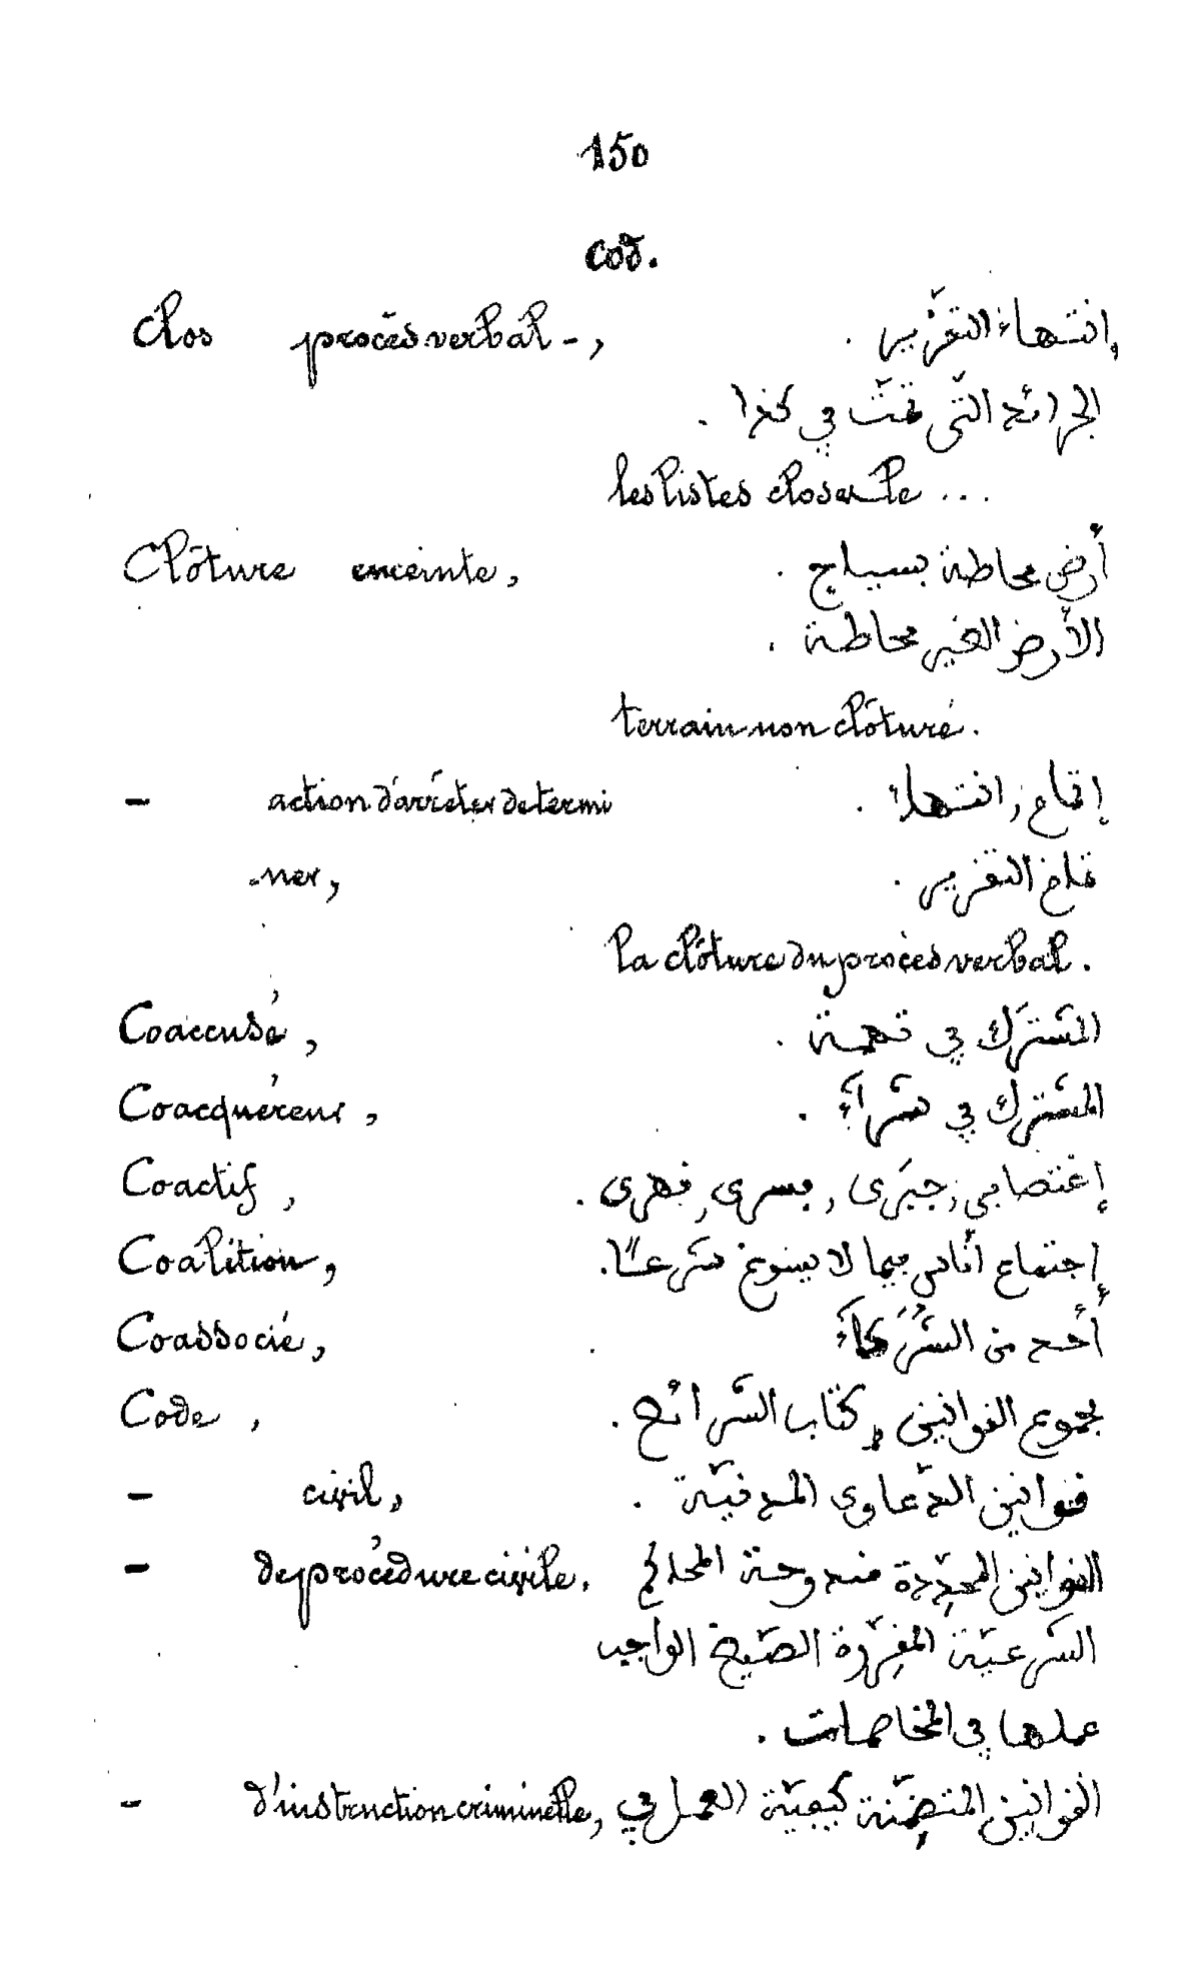 150
Cod.
Clos procès verbal -, إنتهاء التقرير .
الجرائد التّي تمّت في كذا .
les listes closes le ...
Clôture enceinte, أرض محاطة بسياج .
الأرض الغير محاطة .
terrain non clôturé.
- action d'arrêter de termi إتمام, انتهاء .
-ner, تمام التقرير .
la clôture du procès verbal.
Coaccusé, المشترَك في تهمة .
Coacquéreur, المشترك في شرآءَ .
Coactif, إغتصابي, جبَرى, يسرى, قهرى .
Coalition, إجتماع أناس فيما لا يسوغ شرعًا.
Coassocié, أحد من الشُرَكاءَ
Code, مجموع القوانين, كتاب الشرائع .
- civil, قوانين الدّعاوى المدنيّة .
- de procédure civile. القوانين المحدِّدة مندوحة المحاكم
الشرعيّة المقرِّرة الصّيغ الواجب
عملها في المخاصمات .
- d'instruction criminelle, القوانين المتضمّنة كيفيّة العمل في